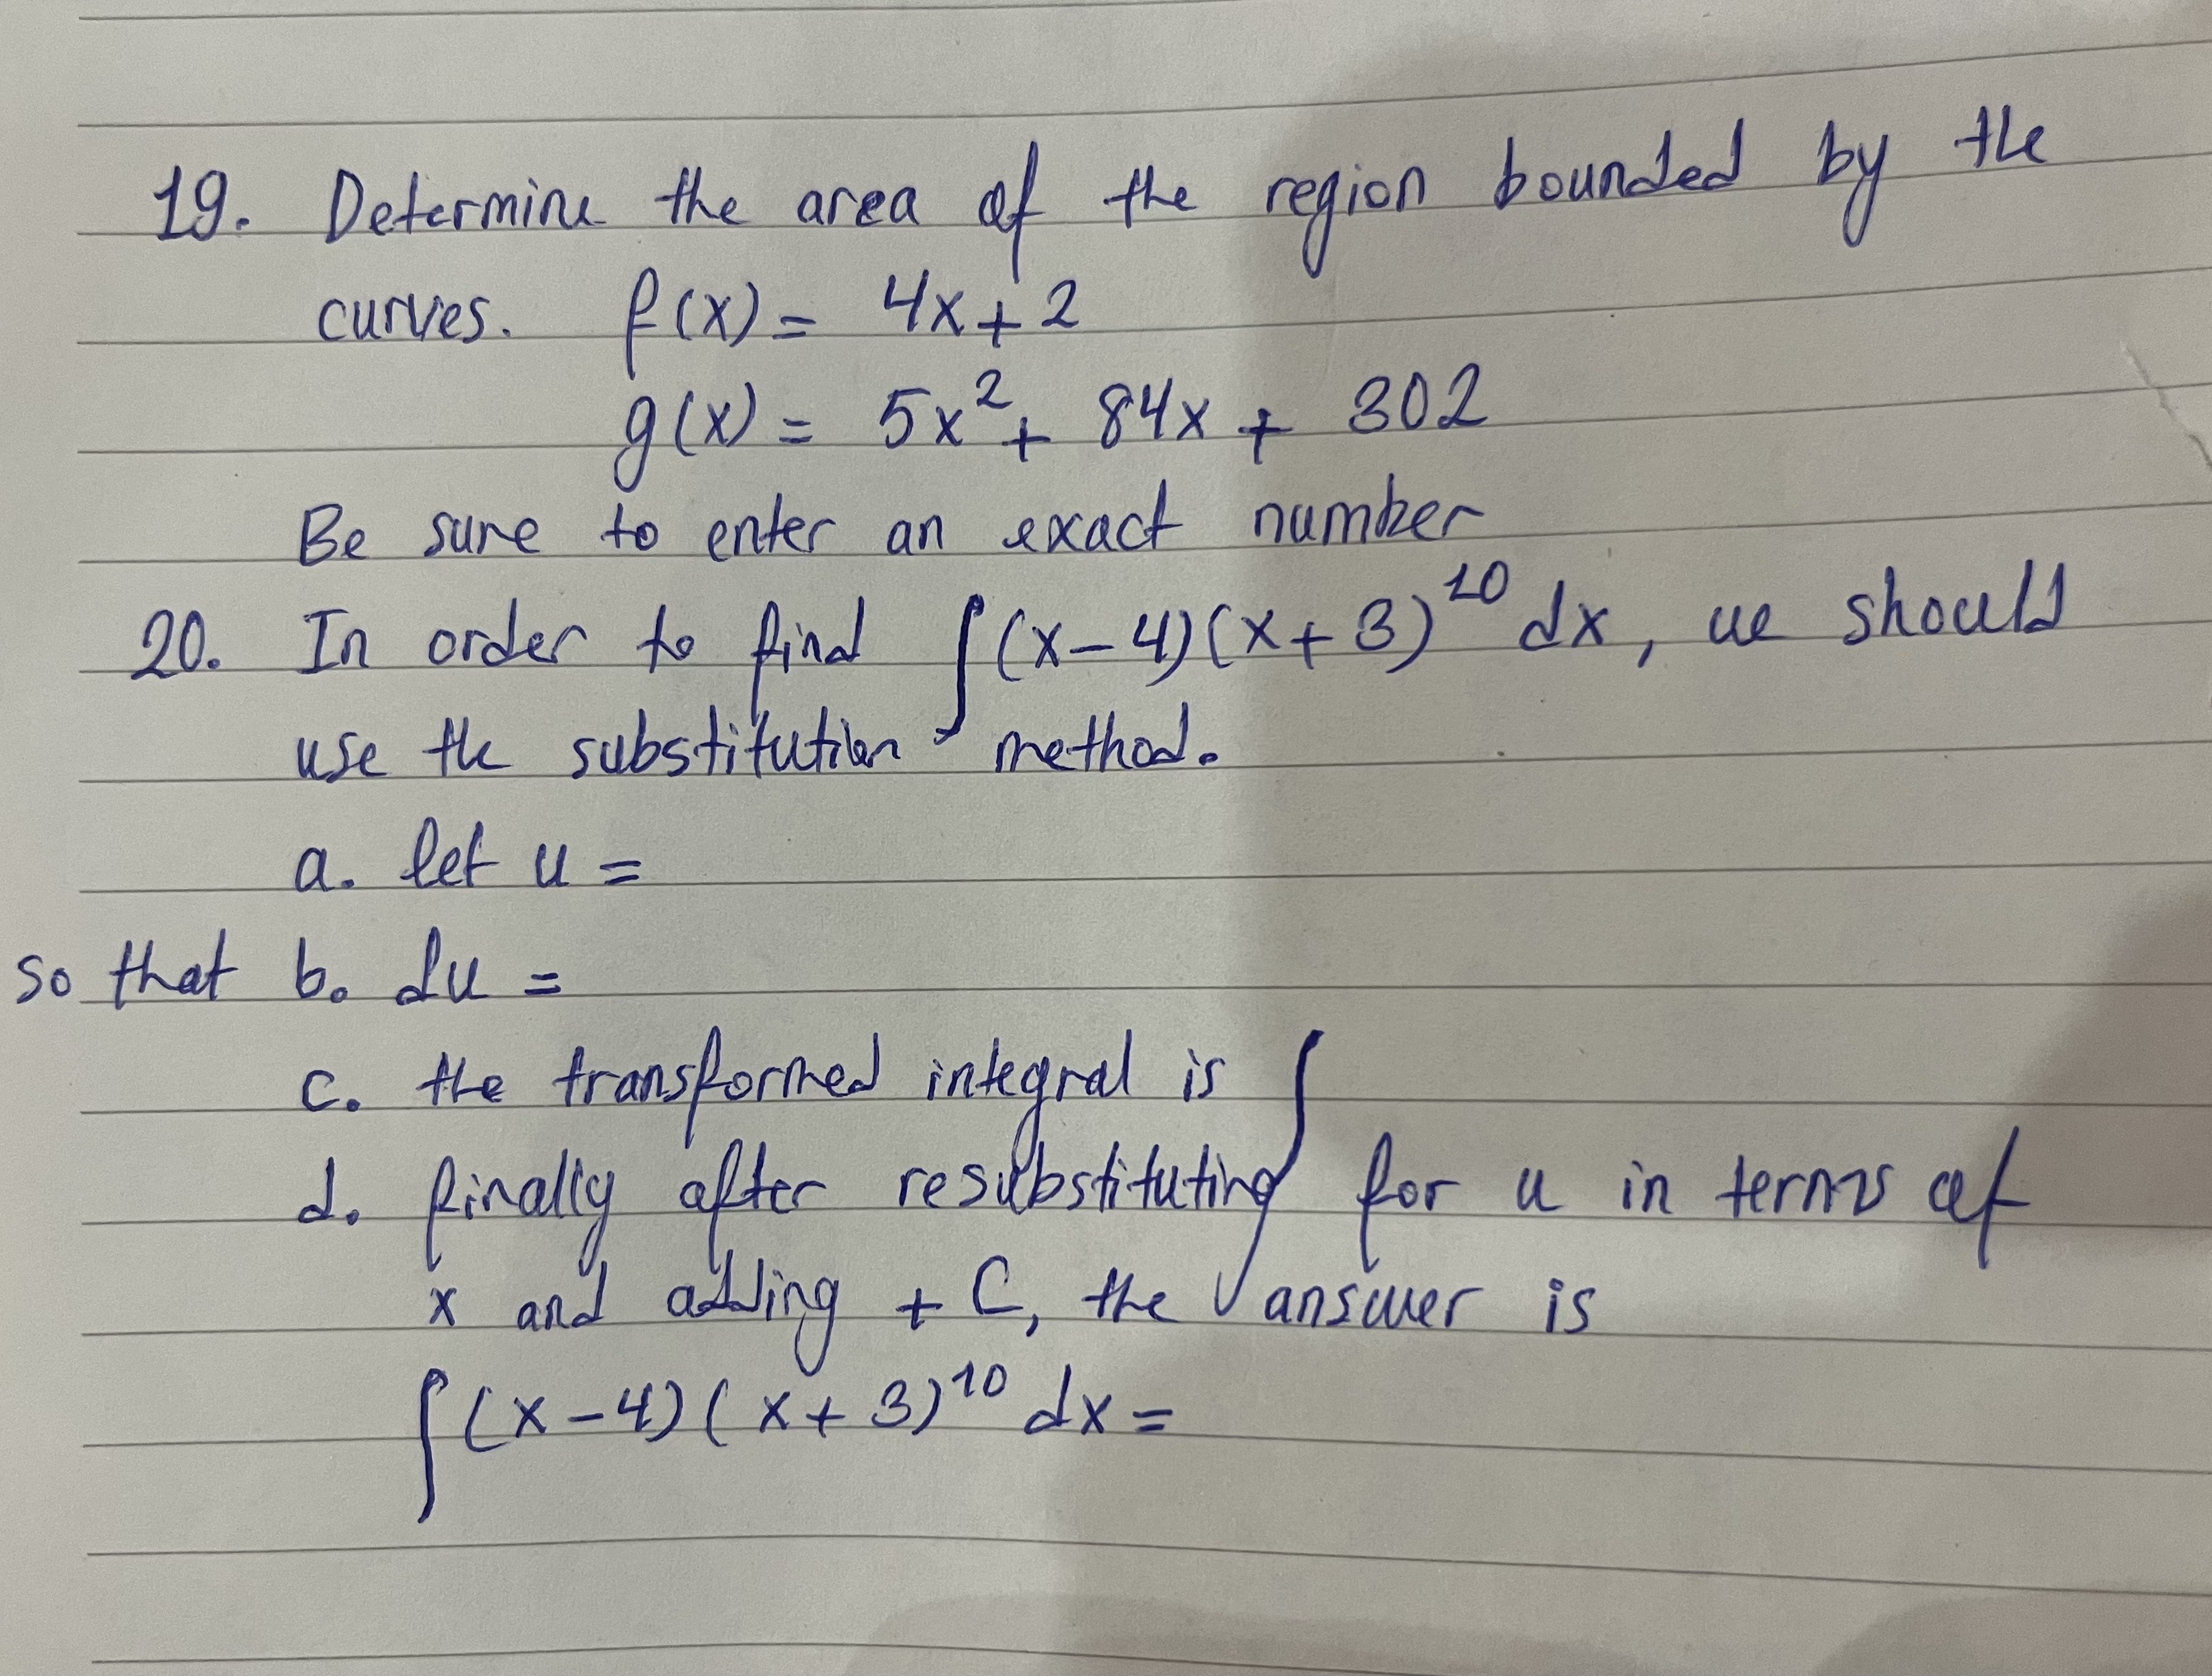 19. Determine the area of the region bounded by the
curves. f(x) = 4x + 2
g(x) = 5x² + 84x + 302
Be sure to enter an exact number
20. In order to find ∫(x-4)(x+3)¹⁰ dx, we should
use the substitution method.
a. let u =
so that b. du =
c. the transformed integral is ∫
d. finally after resubstituting for u in terms of
x and adding + C, the answer is
∫(x-4)(x+3)¹⁰ dx =